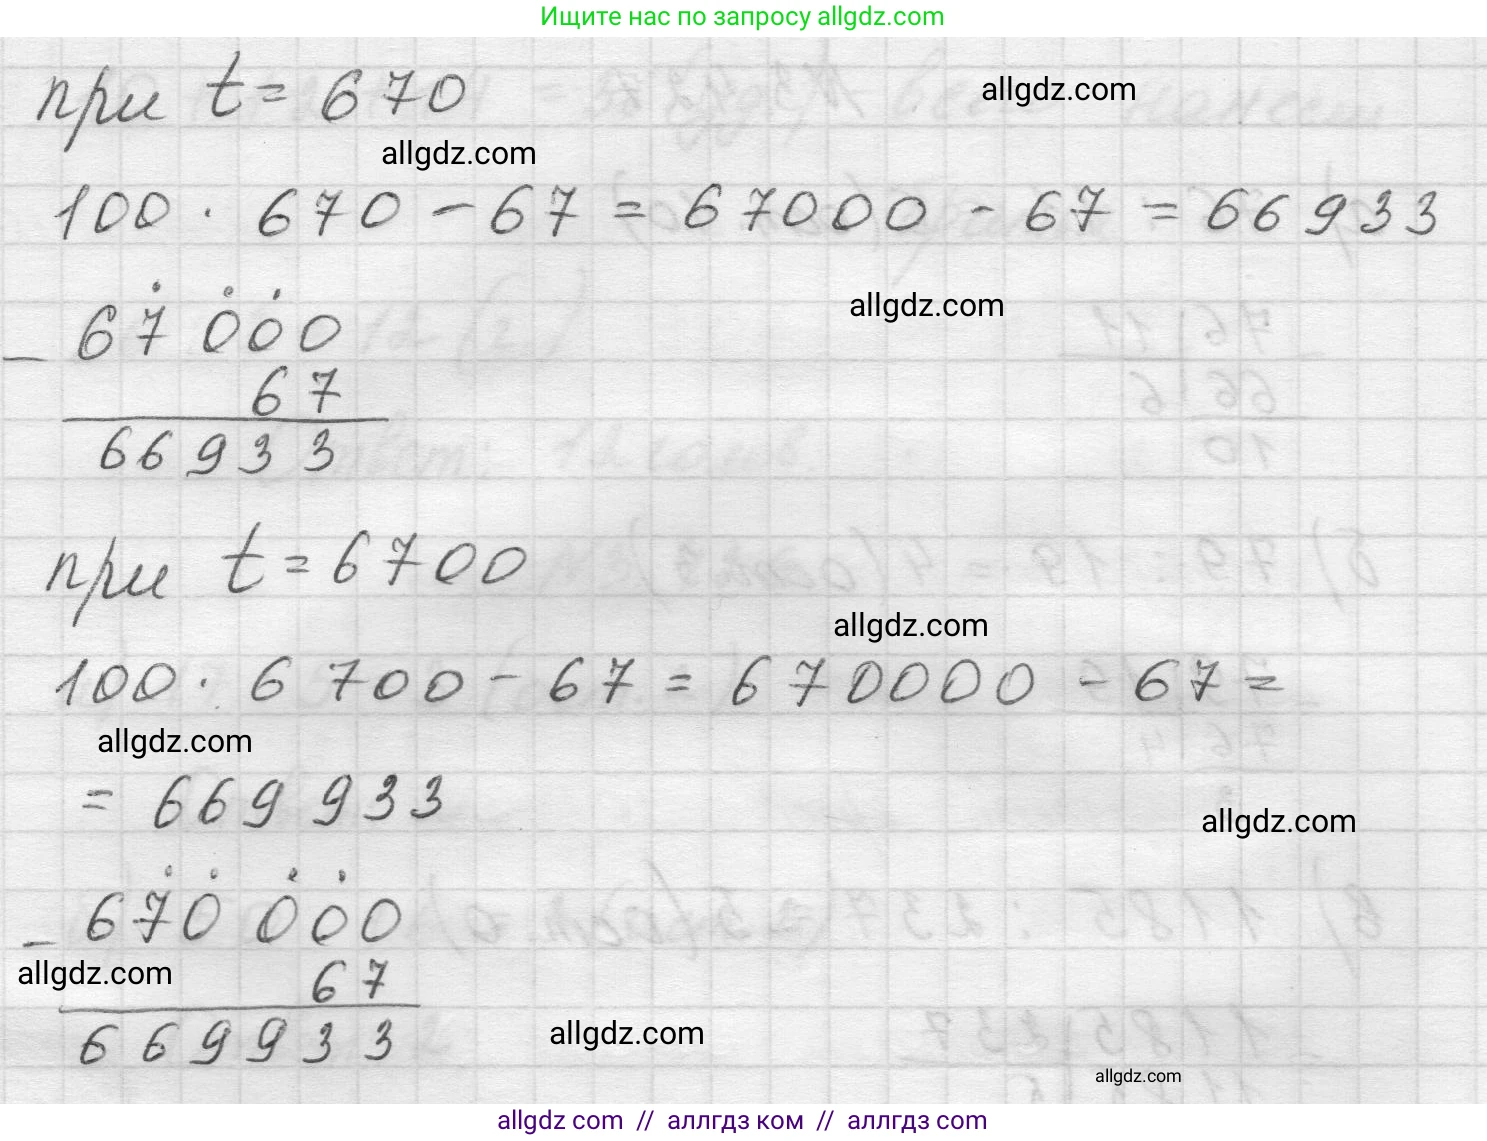 Ищите нас по запросу allgdz.com
при t = 670
allgdz.com
allgdz.com
100 · 670 - 67 = 67000 - 67 = 66933
allgdz.com
- 67 000
67
66933
при t = 6700
allgdz.com
100 · 6700 - 67 = 670000 - 67 =
allgdz.com
= 669 933
allgdz.com
- 670 000
allgdz.com
67
669933
allgdz.com
allgdz.com
allgdz com // аллгдз ком // аллгдз com